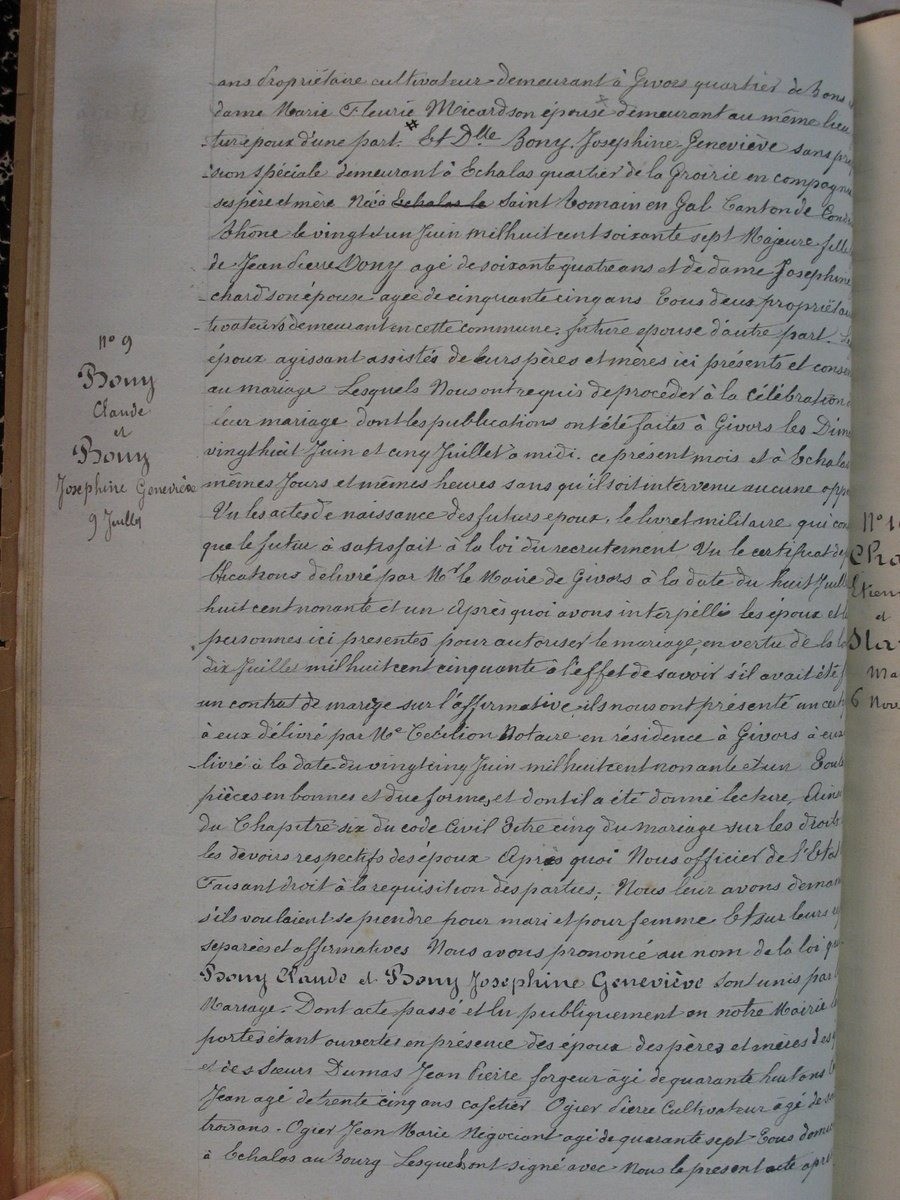 ans Propriétaire cultivateur demeurant à Givors quartier de Bans
dame Marie Fleurie Micard son épouse demeurant au même lieu
tur époux d'une part. Et Dlle Bony Josephine Geneviève sans pro
sion spéciale demeurant à Echalas quartier de la Groirie en compagnie
ses père et mère Née à Echalas le Saint Romain en Gal Canton de Cond
Rhône le vingt un Juin mil huit cent soixante sept Majeure fille
de Jean Pierre Bony agé de soixante quatre ans et de dame Josephine
chard son épouse agée de cinquante cinq ans Tous deux propriétai
tivateurs demeurant en cette commune. future épouse d'autre part.
époux agissant assistés de leurs pères et mères ici présents et consen
au mariage Lesquels Nous ont requis de procéder à la célébration
leur mariage dont les publications ont été faites à Givors les Dim
vingt huit Juin et cinq Juillet à midi. ce présent mois et à Echalas
mêmes Jours et mêmes heures sans qu'il soit intervenu aucune oppo
Vu les actes de naissance des futurs epoux, le livret militaire qui con
que le futur à satisfait à la loi du recrutement Vu le certificat de
blications délivré par Mr le Maire de Givors à la date du huit Juill
huit cent nonante et un Après quoi avons interpellé les époux et
personnes ici presentes pour autoriser le mariage, en vertu de la lo
dix Juillet mil huit cent cinquante à l'effet de savoir s'il avait été
un contrat de marige sur l'affirmative, ils nous ont présenté un cert
à eux délivré par Me Cécilion Notaire en résidence à Givors à eux
livré à la date du vingt cinq Juin mil huit cent nonante et un Tout
pièces en bonnes et due forme, et dont il a été donné lecture, Ains
du Chapitre six du code Civil Titre cinq du mariage sur les droits
les devoirs respectifs des époux Après quoi Nous officier de l'Etat
Faisant droit à la requisition des parties, Nous leur avons deman
s'ils voulaient se prendre pour mari et pour femme Et sur leurs
separées et affirmatives Nous avons prononcé au nom de la loi que
Bony Claude et Bony Josephine Geneviève sont unis par
Mariage. Dont acte passé et lu publiquement en notre Mairie
portes étant ouvertes en présence des époux des pères et mères des
et des Sœurs Dumas Jean Pierre forgeur âgé de quarante huit ans
Jean agé de trente cinq ans cafetier Ogier Pierre Cultivateur âgé de
trois ans. Ogier Jean Marie Négociant agé de quarante sept Tous dom
à Echalas au Bourg Lesquels ont signé avec Nous le présent acte apr
N° 9
Bony
Claude
et
Bony
Josephine Geneviève
9 Juillet
N° 1
Cha
Etienn
et
Ma
6 Nov